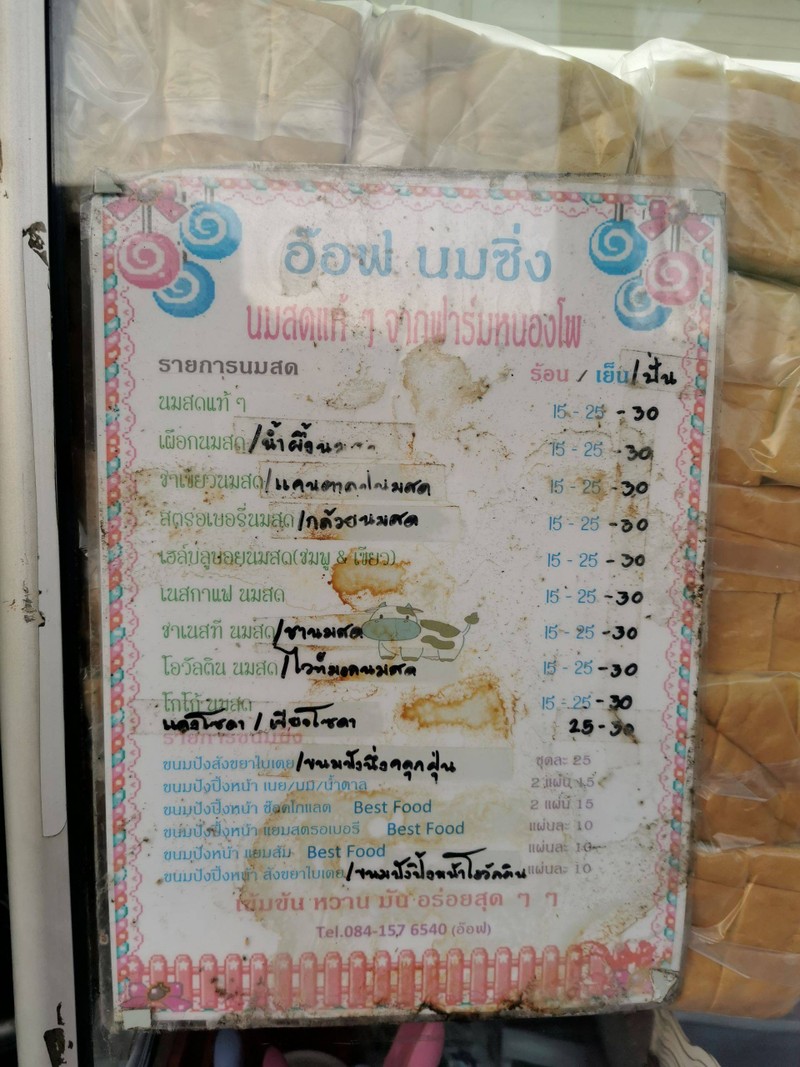 อ๊อฟ นมซิ่ง
นมสดแท้ ๆ จากฟาร์มหนองโพ
รายการนมสด ร้อน / เย็น/ปั่น
นมสดแท้ ๆ 15 - 25 -30
เผือกนมสด/น้ำผึ้ง 15 - 25 -30
ชาเขียวนมสด/แคนตาลูปนมสด 15 - 25 -30
สตรอเบอรี่นมสด/กล้วยนมสด 15 - 25 -30
เฮลบลูบอยนมสด(ชมพู & เขียว) 15 - 25 -30
เนสกาแฟ นมสด 15 - 25 -30
ชาเนสที นมสด/ชานมสด 15 - 25 -30
โอวัลติน นมสด/ไวท์มอลนมสด 15 - 25 -30
โกโก้ นมสด 15 - 25 -30
แดงโซดา / เขียวโซดา 25-30
รายการขนมปัง
ขนมปังสังขยาใบเตย/ขนมปังนึ่ง ชุดละ 25
ขนมปังปิ้งหน้า เนย/นม/น้ำตาล 2 แผ่น 15
ขนมปังปิ้งหน้า ช๊อคโกแลต Best Food 2 แผ่น 15
ขนมปังปิ้งหน้า แยมสตรอเบอรี่ Best Food แผ่นละ 10
ขนมปังหน้า แยมส้ม Best Food แผ่นละ 10
ขนมปังปิ้งหน้า สังขยาใบเตย/ขนมปังปิ้งหน้าโอวัลติน แผ่นละ 10
เข้มข้น หวาน มัน อร่อยสุด ๆ ๆ
Tel.084-157 6540 (อ๊อฟ)